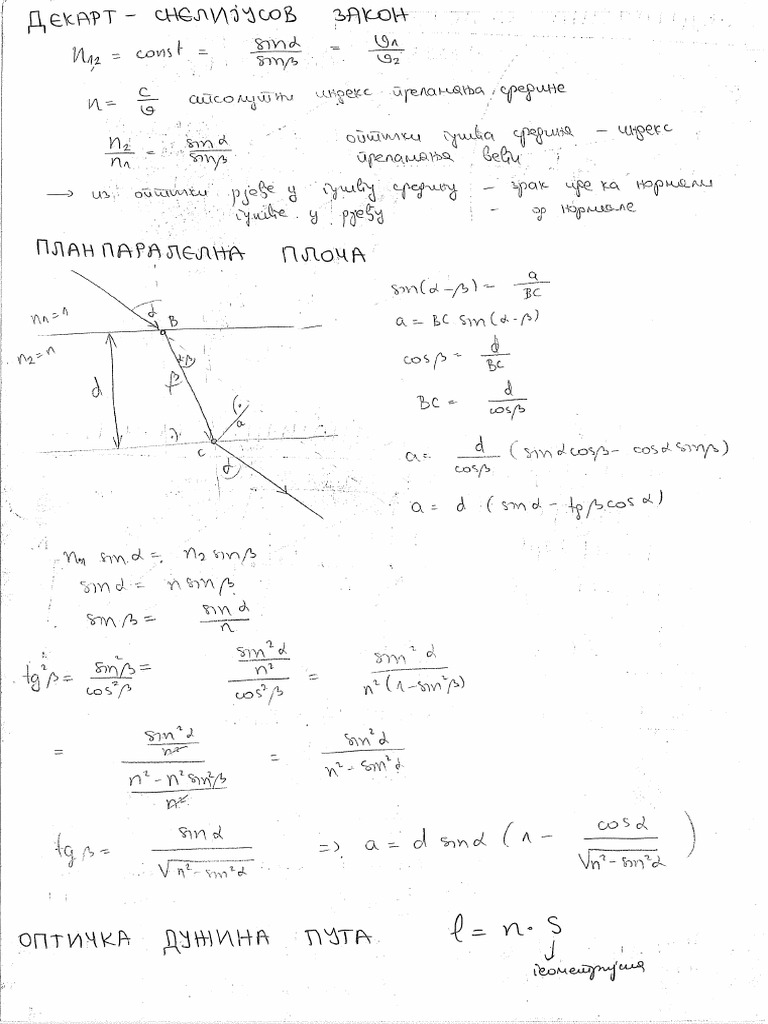 ДЕКАРТ – СНЕЛИЈУСОВ ЗАКОН
n₁₂ = const = sinα/sinβ = υ₁/υ₂
n = c/υ апсолутни индекс преламања средине
n₂/n₁ = sinα/sinβ оптички гушћа средина – индекс
преламања већи
→ из оптички рјеђе у гушћу средину – зрак иде ка нормали
гушће у рјеђу – од нормале
ПЛАНПАРАЛЕЛНА ПЛОЧА
sin(α-β) = a/BC
n₁=1 α B
a = BC sin(α-β)
n₂=n α-β
cosβ = d/BC
d β
BC = d/cosβ
a
C α
a = d/cosβ (sinαcosβ - cosαsinβ)
a = d (sinα - tgβcosα)
n₁ sinα = n₂ sinβ
sinα = n sinβ
sinβ = sinα/n
tg²β = sin²β/cos²β = (sin²α/n²)/cos²β = sin²α/(n²(1-sin²β))
= (sin²α/n²)/((n²-n²sin²β)/n²) = sin²α/(n²-sin²α)
tgβ = sinα/√(n²-sin²α) => a = d sinα (1 - cosα/√(n²-sin²α))
ОПТИЧКА ДУЖИНА ПУТА l = n · S
↓
геометријска